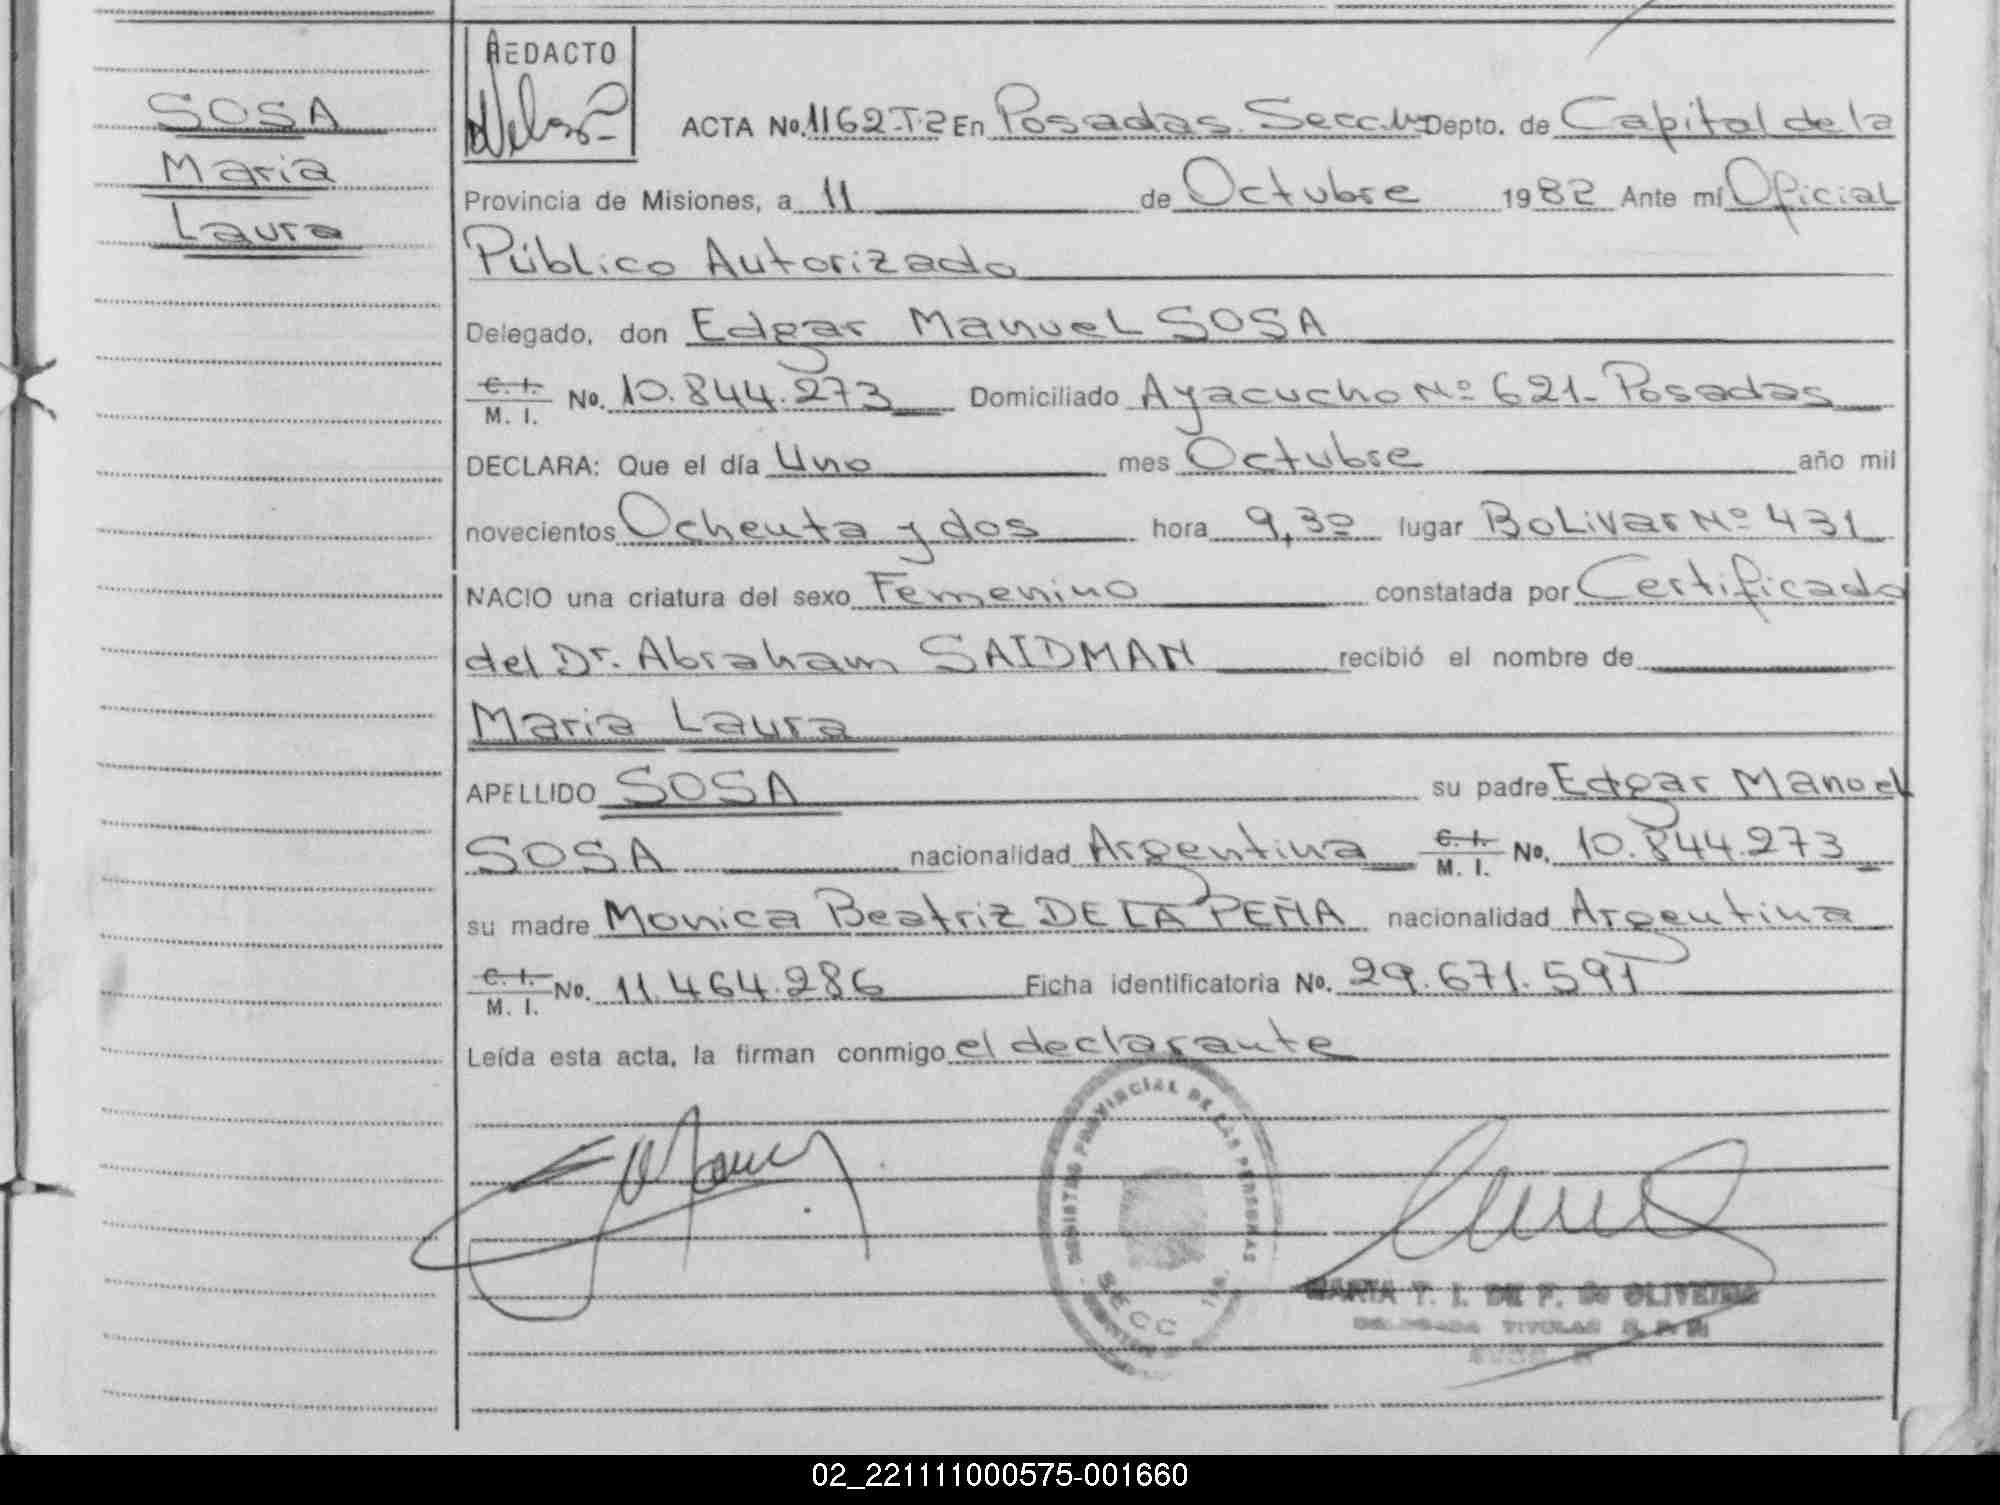 SOSA
Maria
Laura
REDACTO
ACTA No. 1162-T.2 En Posadas. Secc. 1ra Depto. de Capital de la
Provincia de Misiones, a 11 de Octubre 1982 Ante mí Oficial
Público Autorizado
Delegado, don Edgar Manuel SOSA
C. I.
M. I. No. 10.844.273 Domiciliado Ayacucho Nº 621- Posadas
DECLARA: Que el día Uno mes Octubre año mil
novecientos Ochenta y dos hora 9,30 lugar Bolivar Nº 431
NACIO una criatura del sexo Femenino constatada por Certificado
del Dr. Abraham SAIDMAN recibió el nombre de
Maria Laura
APELLIDO SOSA su padre Edgar Manuel
SOSA nacionalidad Argentina C. I.
M. I. No. 10.844.273
su madre Monica Beatriz DE LA PEÑA nacionalidad Argentina
C. I.
M. I. No. 11.464.286 Ficha identificatoria No. 29.671.591
Leída esta acta, la firman conmigo el declarante
REGISTRO PROVINCIAL DE LAS PERSONAS
SECC 1ra.
MARIA T. I. DE F. DE OLIVEIRA
DELEGADA TITULAR R. P. P.
02_221111000575-001660